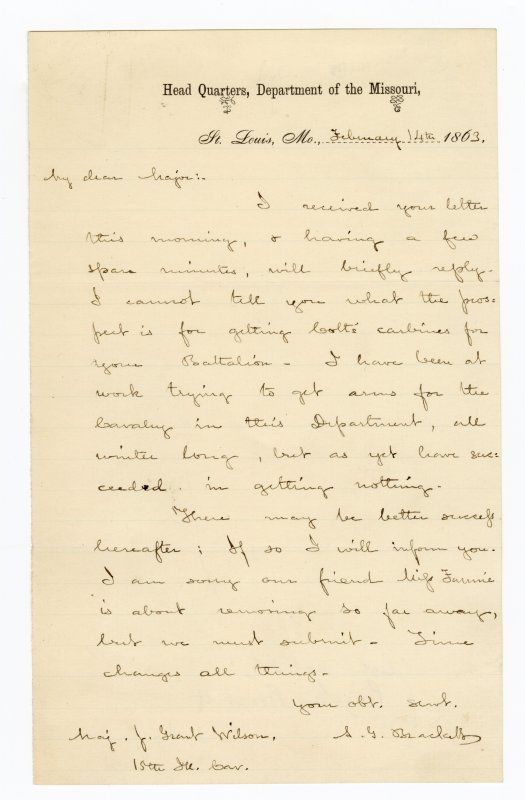 Head Quarters, Department of the Missouri,
St. Louis, Mo., February 14th 1863.
My dear Major:-
I received your letter
this morning, & having a few
spare minutes, will briefly reply.
I cannot tell you what the pros=
pect is for getting Colt's carbines for
your Battalion - I have been at
work trying to get arms for the
Cavalry in this Department, all
winter long, but as yet have suc=
ceeded in getting nothing.
There may be better success
hereafter; If so I will inform you.
I am sorry our friend Miss Fannie
is about removing so far away,
but we must submit - Time
changes all things -
Your obt. servt.
Maj. J. Grant Wilson, A. G. Brackett
15th Ill. Cav.